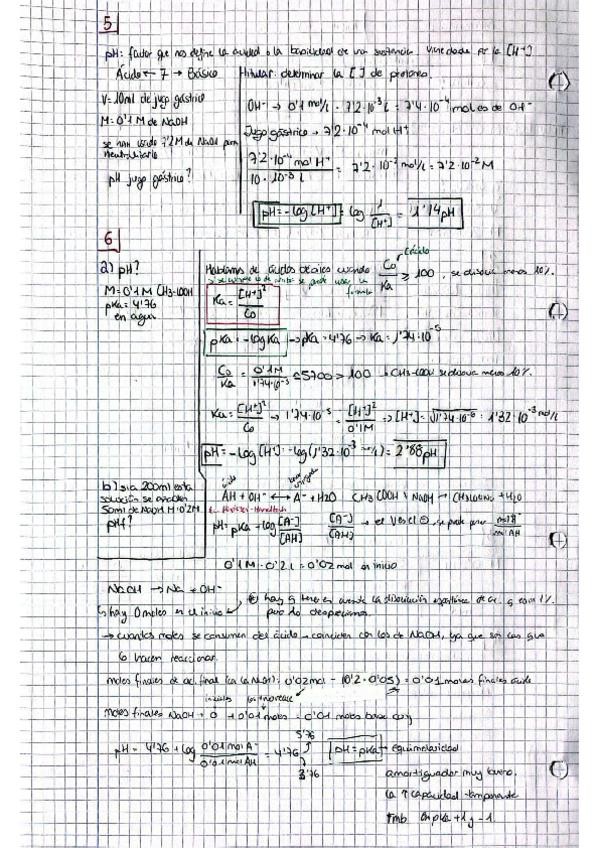 5
pH: factor que nos define la acidez o la basicidad de una sustancia. Viene dada por la [H+]
Ácido ← 7 → Básico
Titular: determinar la [ ] de protones.
V=10ml de jugo gástrico
M=0'1 M de NaOH
se han usado 7'2 M de NaOH para
neutralizarlo
pH jugo gástrico?
OH- → 0'1 mol/L · 7'2·10-3 L = 7'4·10-4 moles de OH-
Jugo gástrico → 7'2·10-4 mol H+
7'2·10-4 mol H+ / 10·10-3 L = 7'2·10-2 mol/L = 7'2·10-2 M
pH = -log [H+] = log 1/[H+] = 1'14 pH
6
a) pH?
M=0'1M CH3-COOH
pKa=4'76
en agua
Hablamos de ácidos débiles cuando Co/Ka ≥ 100, se disocia menos 10%.
Cálculo
se puede usar la
fórmula
Ka = [H+]2/Co
pKa = -log Ka → pKa = 4'76 → Ka = 1'74·10-5
Co/Ka = 0'1M/1'74·10-5 ≈ 5700 > 100 CH3-COOH se disocia menos 10%.
Ka = [H+]2/Co → 1'74·10-5 = [H+]2/0'1M → [H+] = √1'74·10-6 : 1'32·10-3 mol/L
pH = -log [H+] = -log (1'32·10-3 mol/L) = 2'88 pH
b) si a 200ml esta
solución se añaden
50ml de NaOH M=0'2M
pH?
ácido
base conjugada
AH + OH- ←→ A- + H2O CH3COOH + NaOH → + H2O
pH = pKa - log [A-]/[AH] [A-]/[AH] → el V es el =, se puede poner mol A-/mol AH
0'1 M · 0'2 L = 0'02 mol en inicio
NaOH → Na + OH-
hay 0 moles en el inicio
hay q tener en cuenta la disociación espontánea de ac. q es un 1%
pero lo despreciamos.
→ cuantos moles se consumen del ácido → coinciden con los de NaOH, ya que son los que
lo hacen reaccionar.
moles finales de ac. final (ca la NaOH): 0'02 mol - (0'2·0'05) = 0'01 moles finales ácido
iniciales
moles finales NaOH = 0 + 0'01 moles = 0'01 moles base conj
pH = 4'76 + log 0'01 mol A-/0'01 mol AH = 4'76 pH = pKa → equimolaridad
5'76
3'76
amortiguador muy bueno.
la ↑ capacidad tamponante
tmb en pKa +1 y -1.